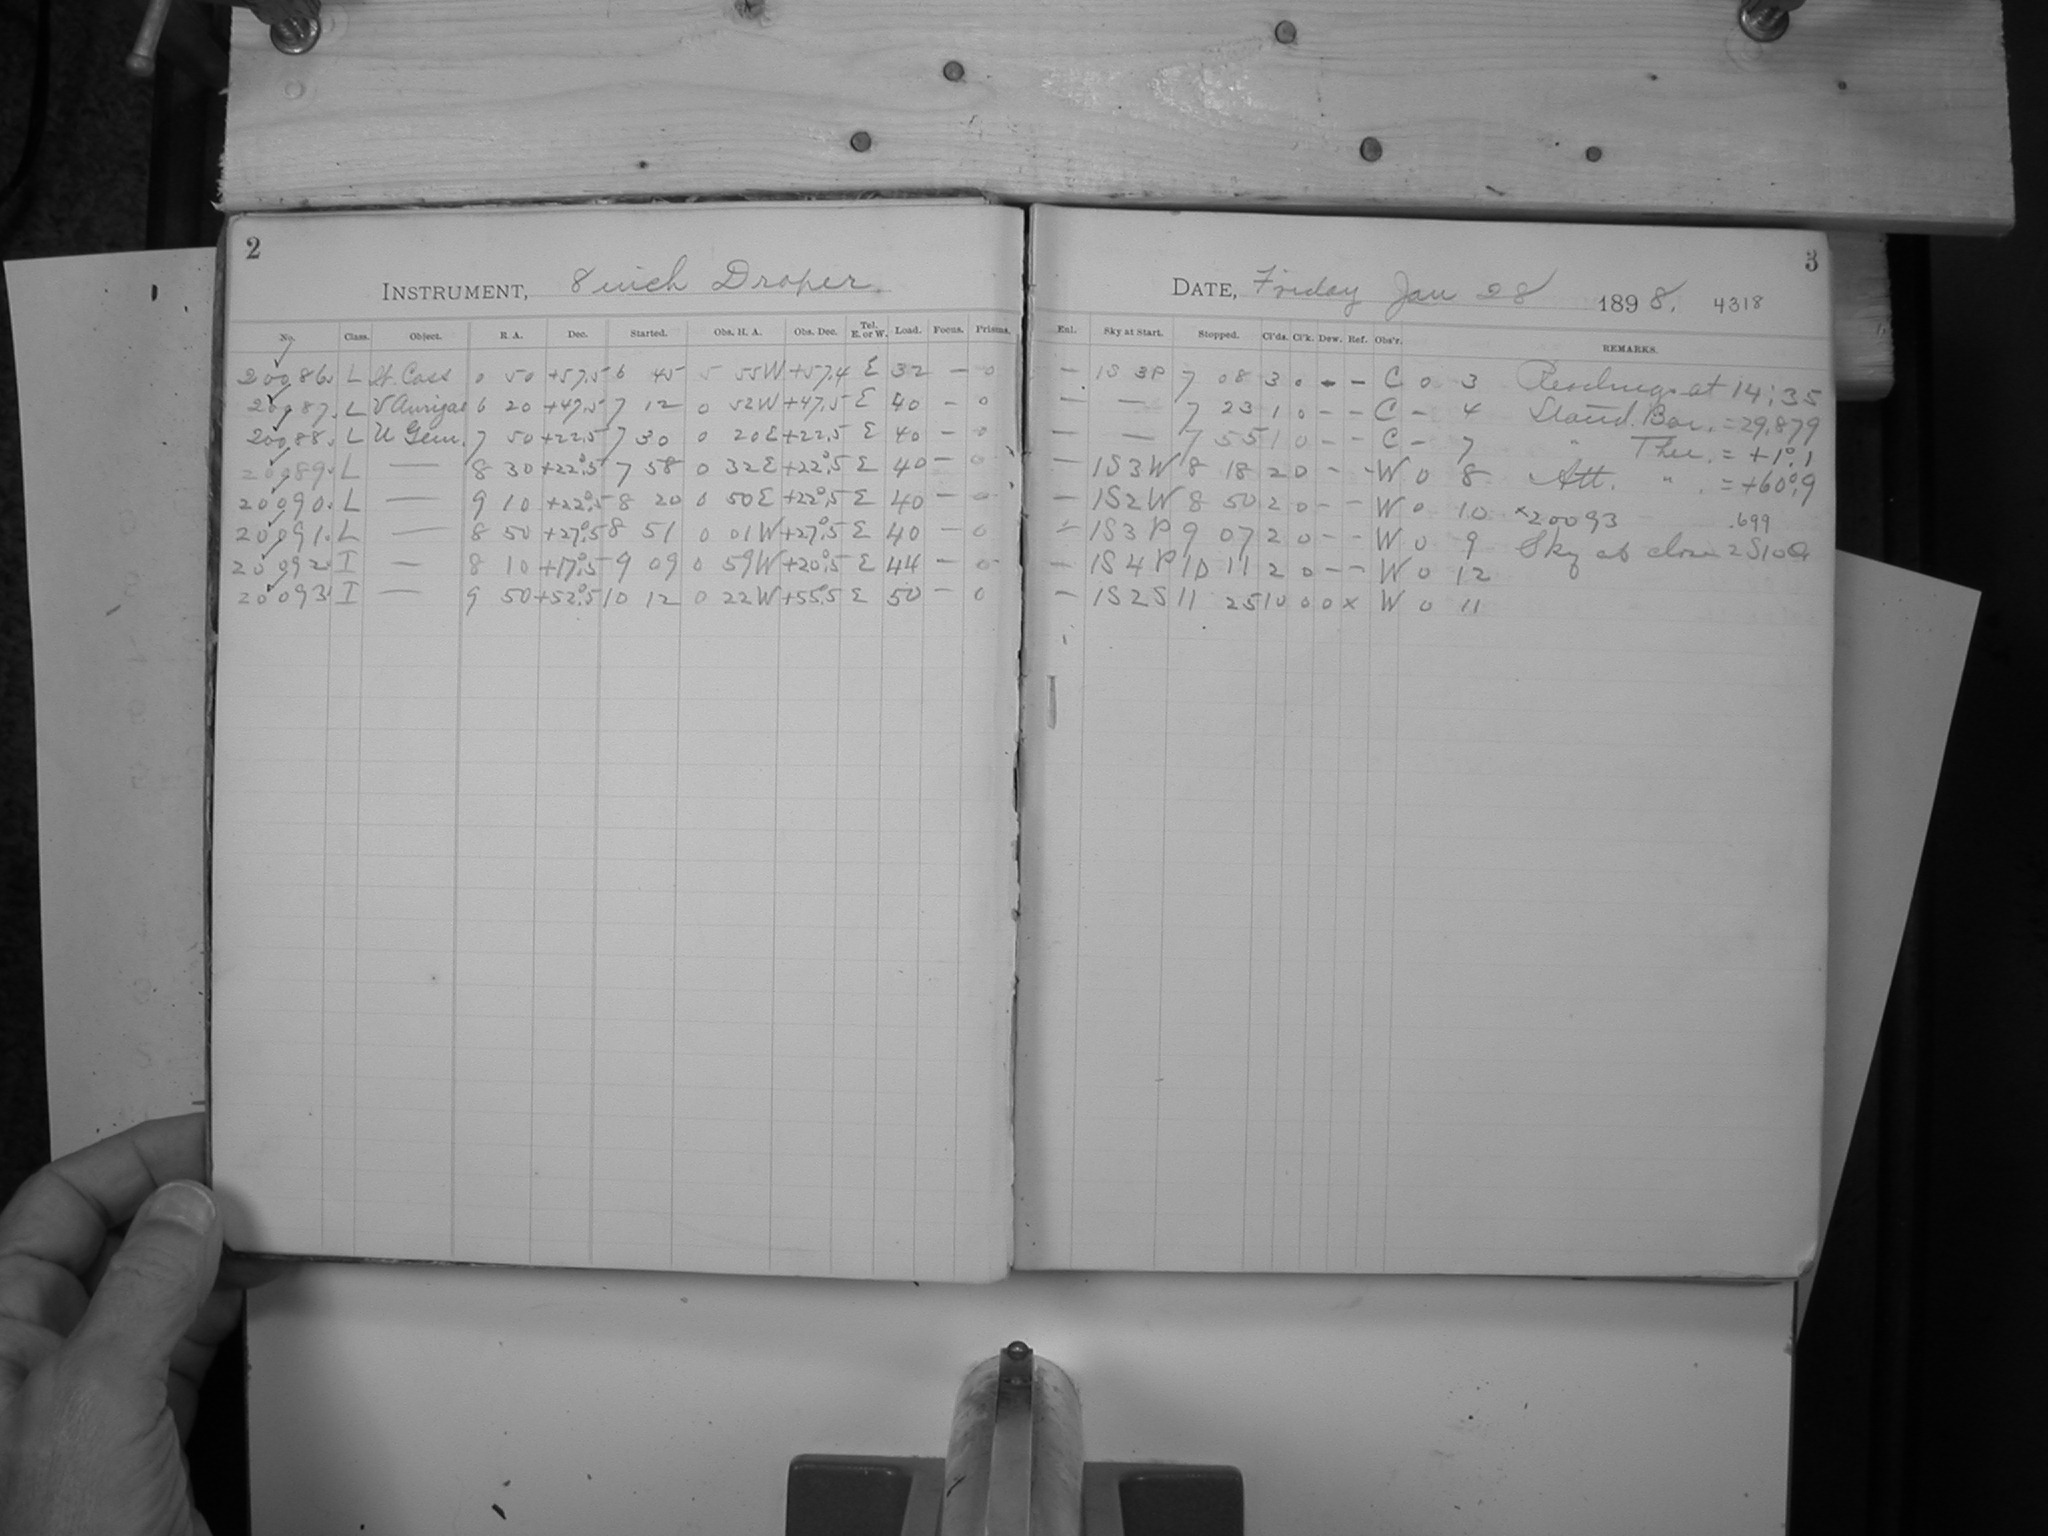 2
INSTRUMENT, 8 inch Draper.
No. Class. Object. R. A. Dec. Started. Obs. H. A. Obs. Dec. Tel. E. or W. Load. Focus. Prisms.
20086. L W. Cass 0 50 +57.5 6 45 5 55W +57.4 E 32 — 0
20087. L V Aurigae 6 20 +47.5 7 12 0 52W +47.5 E 40 — 0
20088. L U Gem. 7 50 +22.5 7 30 0 20E +22.5 E 40 — 0
20089. L — 8 30 +22°.5 7 58 0 32E +22°.5 E 40 — 0
20090. L — 9 10 +22°.5 8 20 0 50E +22°.5 E 40 — 0
20091. L — 8 50 +27°.5 8 51 0 01W +27°.5 E 40 — 0
20092. I — 8 10 +17°.5 9 09 0 59W +20°.5 E 44 — 0
20093. I — 9 50 +52°.5 10 12 0 22W +55°.5 E 50 — 0
3
DATE, Friday Jan 28 1898. 4318
Enl. Sky at Start. Stopped. Cl'ds. Cl'k. Dew. Ref. Obs'r. REMARKS.
— 1S 3P 7 08 3 0 - - C 0 3 Readings at 14:35
— — 7 23 1 0 - - C - 4 Stand. Bar. = 29.879
— — 7 55 1 0 - - C - 7 " Ther. = +1°.1
— 1S3W 8 18 2 0 - - W 0 8 Att. " . = +60°.9
— 1S2W 8 50 2 0 - - W 0 10 x20093 .699
— 1S3P 9 07 2 0 - - W 0 9 Sky at close 2S10
— 1S4P 10 11 2 0 - - W 0 12
— 1S2S 11 25 10 0 0 x W 0 11